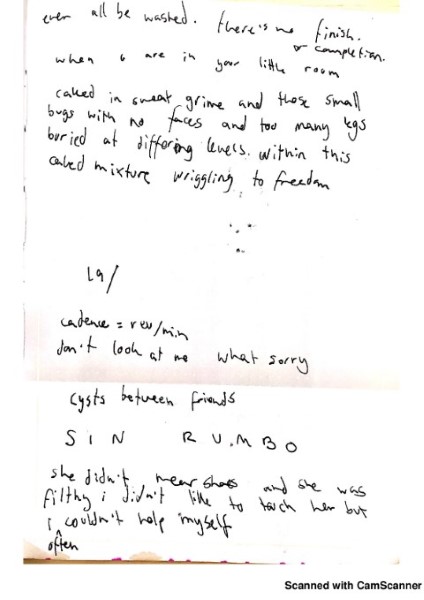 ever all be washed. there's no finish.
or completion.
when u are in your little room
caked in sweat grime and those small
bugs with no faces and too many legs
buried at differing levels. within this
caked mixture wriggling to freedom
19/
cadence = rev/min
don't look at me what sorry
cysts between friends
SIN RUMBO
she didn't wear shoes and she was
filthy i didn't like to touch her but
i couldn't help myself
often
Scanned with CamScanner